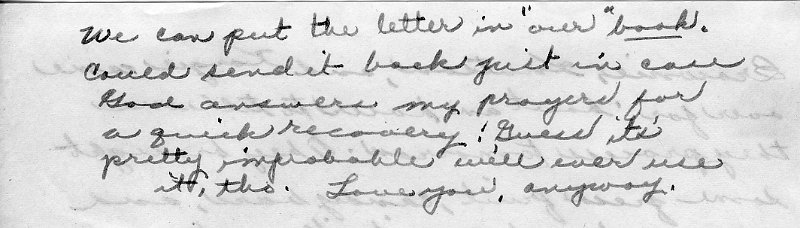 We can put the letter in "our" book.
Could send it back just in case
God answers my prayers for
a quick recovery! Guess it's
pretty improbable we'll ever use
it, tho. Love you, anyway.